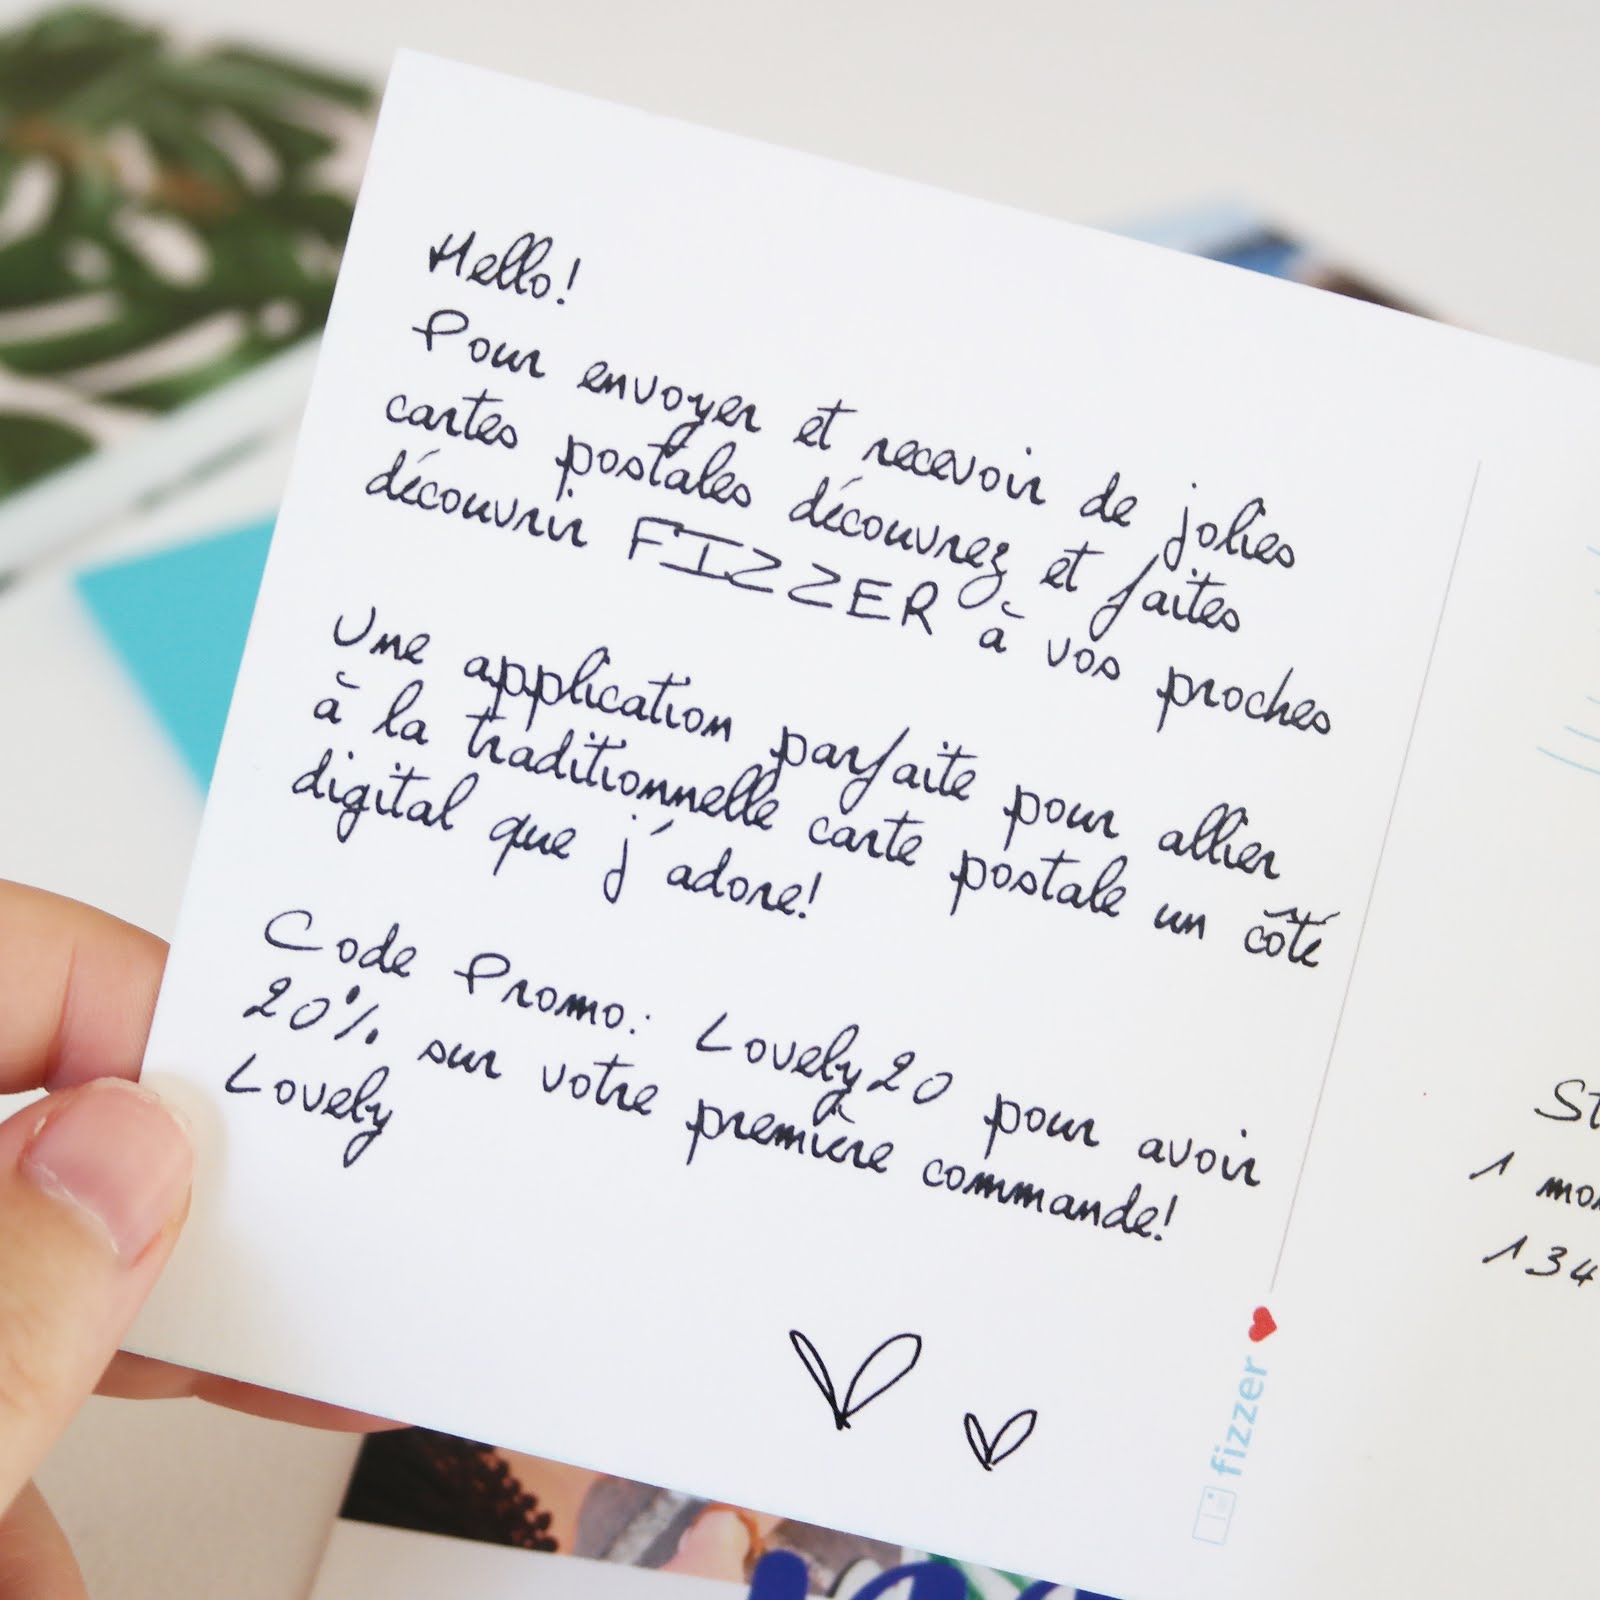 Hello!
Pour envoyer et recevoir de jolies
cartes postales découvrez et faites
découvrir FIZZER à vos proches
Une application parfaite pour allier
à la traditionnelle carte postale un côté
digital que j'adore!
Code Promo: Lovely20 pour avoir
20% sur votre première commande!
Lovely
fizzer
1
134